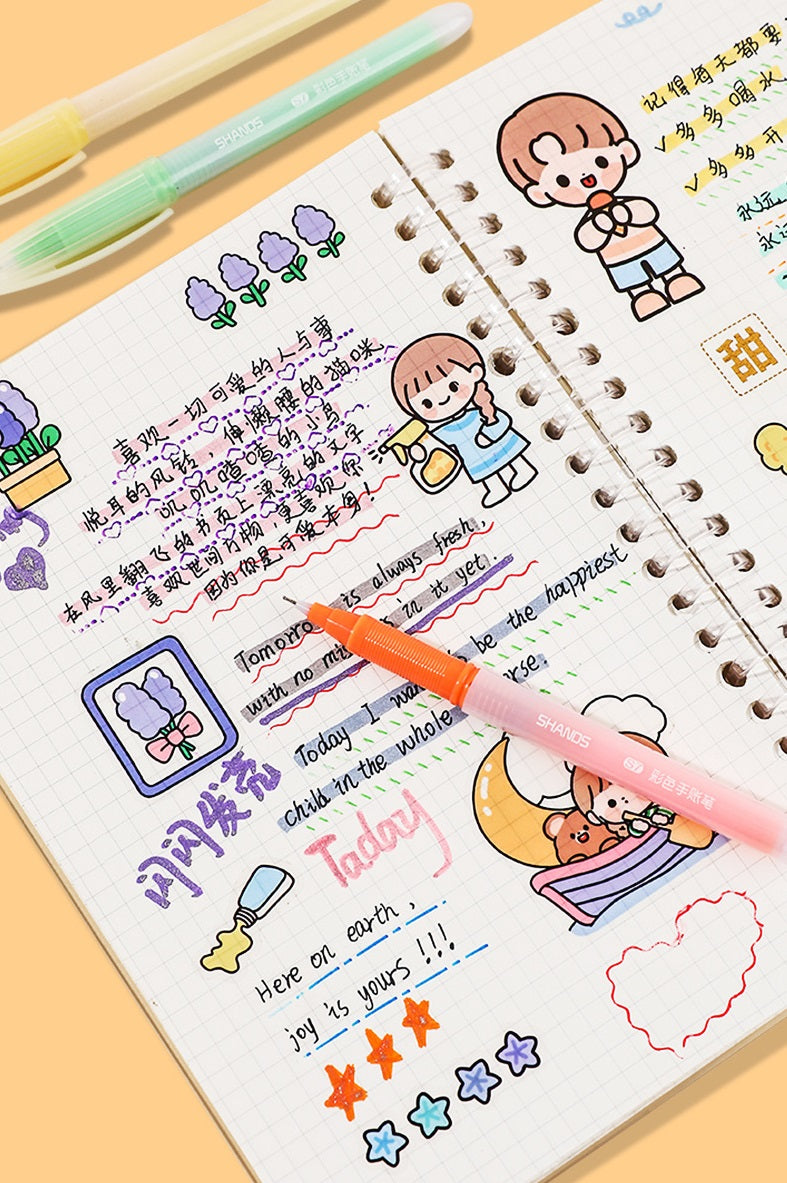 SHANDS S7 彩色手账笔
喜欢一切可爱的人与事
悦耳的风铃，伸懒腰的猫咪、
叽叽喳喳的小鸟
在风里翻飞的书页上漂亮的文字
喜欢世间万物，更喜欢你
因为你是可爱本身！
Tomorro is always fresh,
with no in it yet.
Today I be the happiest
child in the whole
闪闪发亮
Taday
Here on earth,
joy is yours !!!
记得每天都要
✓多多喝水
✓多多开
永远
永远
甜
SHANDS S7 彩色手账笔